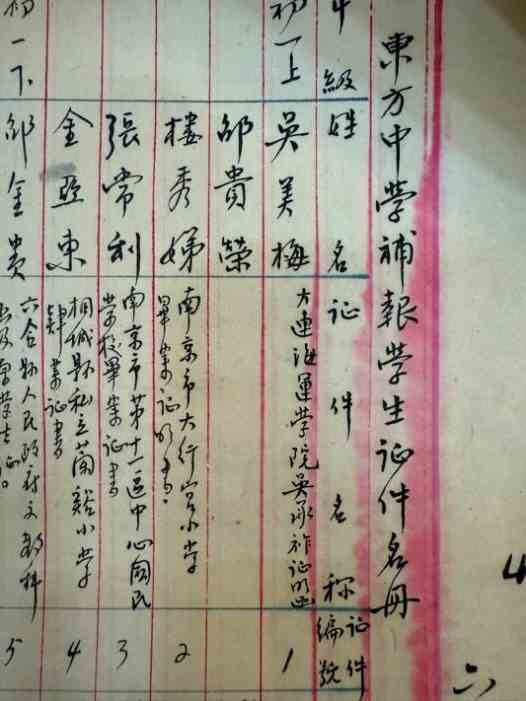 東方中学補報学生证件名冊
年級 姓名 证件名称 证件編號
初一上 吳美梅 大連海運学院吳承祚证明函 1
邱貴榮
樓秀娣 南京市大行宮小学畢業证明書 2
張常利 南京市第十一區中心國民学校畢業证書 3
金亞東 桐城縣私立蘭谿小学肄業证書 4
初一下 邹金貴 六合縣人民政府文教科 5
六
4